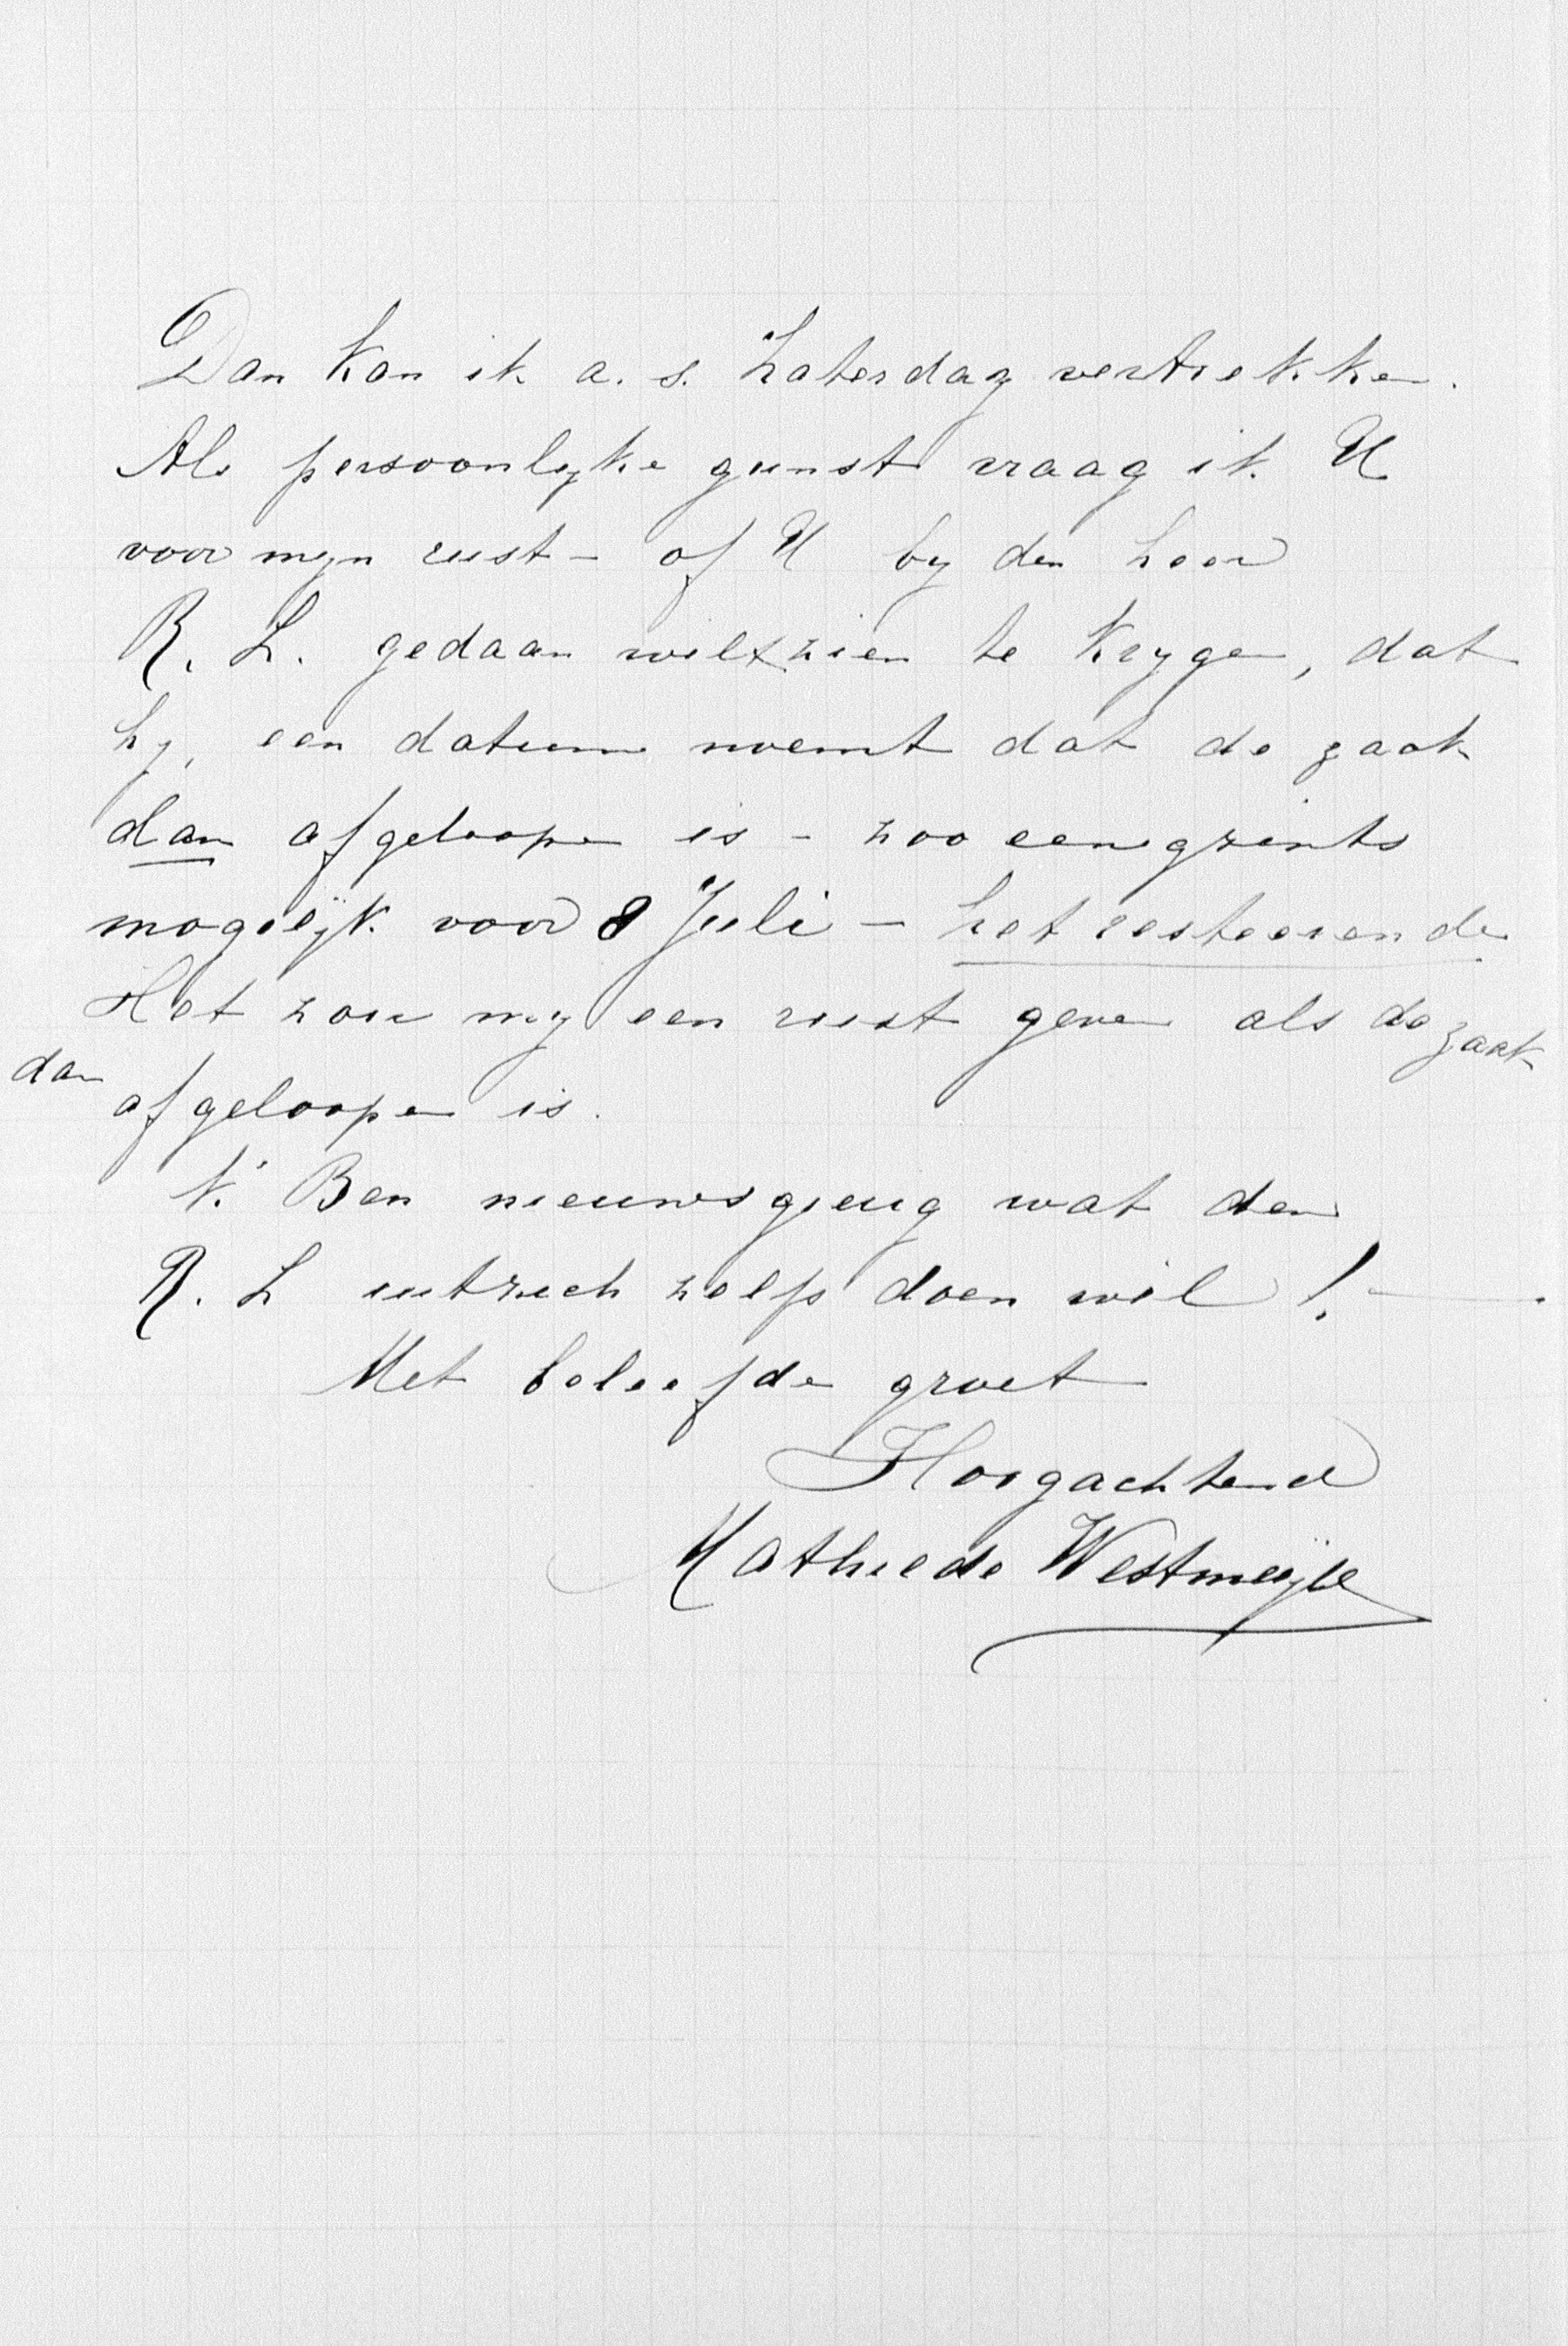 Dan kan ik a. s. Zaterdag vertrekken.
Als persoonlyke gunst vraag ik U
voor myn rust – of U by den heer
R. L. gedaan wilt zien te krygen, dat
hy, een datum noemt dat de zaak
dan afgeloopen is – zoo eenigzints
mogelijk voor 8 Juli – het resteerende
Het zou my een rust geven als de zaak
dan afgeloopen is.
'k Ben nieuwsgierig wat den
R. L zelfs doen wil!
Met beleefde groet
Hoogachtend
Mathilde Westmeijer